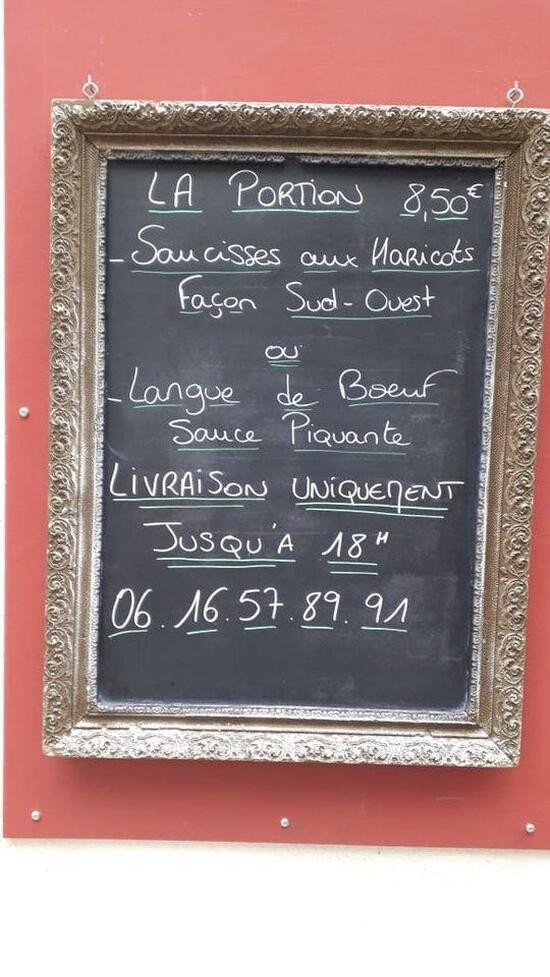 LA PORTION 8,50€
- Saucisses aux Haricots
Façon Sud-Ouest
ou
- Langue de Boeuf
Sauce Piquante
LIVRAISON UNIQUEMENT
JUSQU'A 18H
06.16.57.89.91